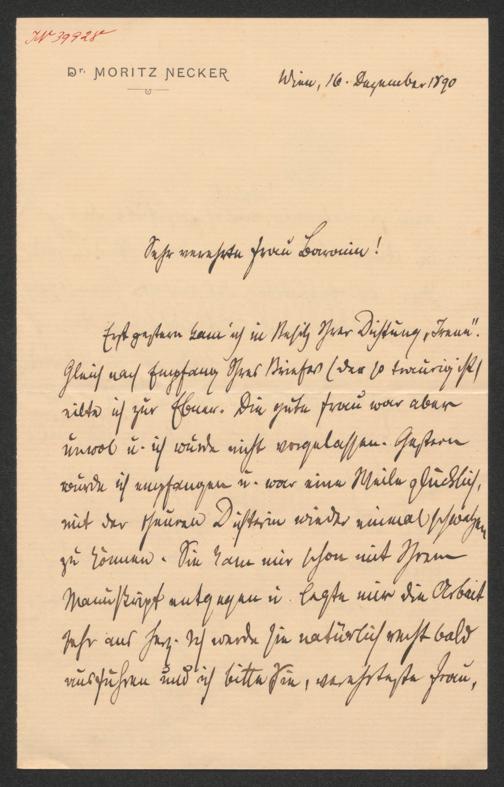 IN 39928
Dr. MORITZ NECKER
Wien, 16. Dezember 1890
Sehr verehrte Frau Baronin!
Erst gestern kam ich in Besitz Ihrer Dichtung „Irene".
Gleich nach Empfang Ihres Briefes (der so traurig ist)
eilte ich zur Ebner. Die gute Frau war aber
unwol u. ich wurde nicht vorgelassen. Gestern
wurde ich empfangen u. war eine Weile glücklich,
mit der theuren Dichterin wieder einmal schwatzen
zu können. Sie kam mir schon mit Ihrem
Manuskript entgegen u. legte mir die Arbeit
sehr ans Herz. Ich werde sie natürlich recht bald
ausführen und ich bitte Sie, verehrteste Frau,